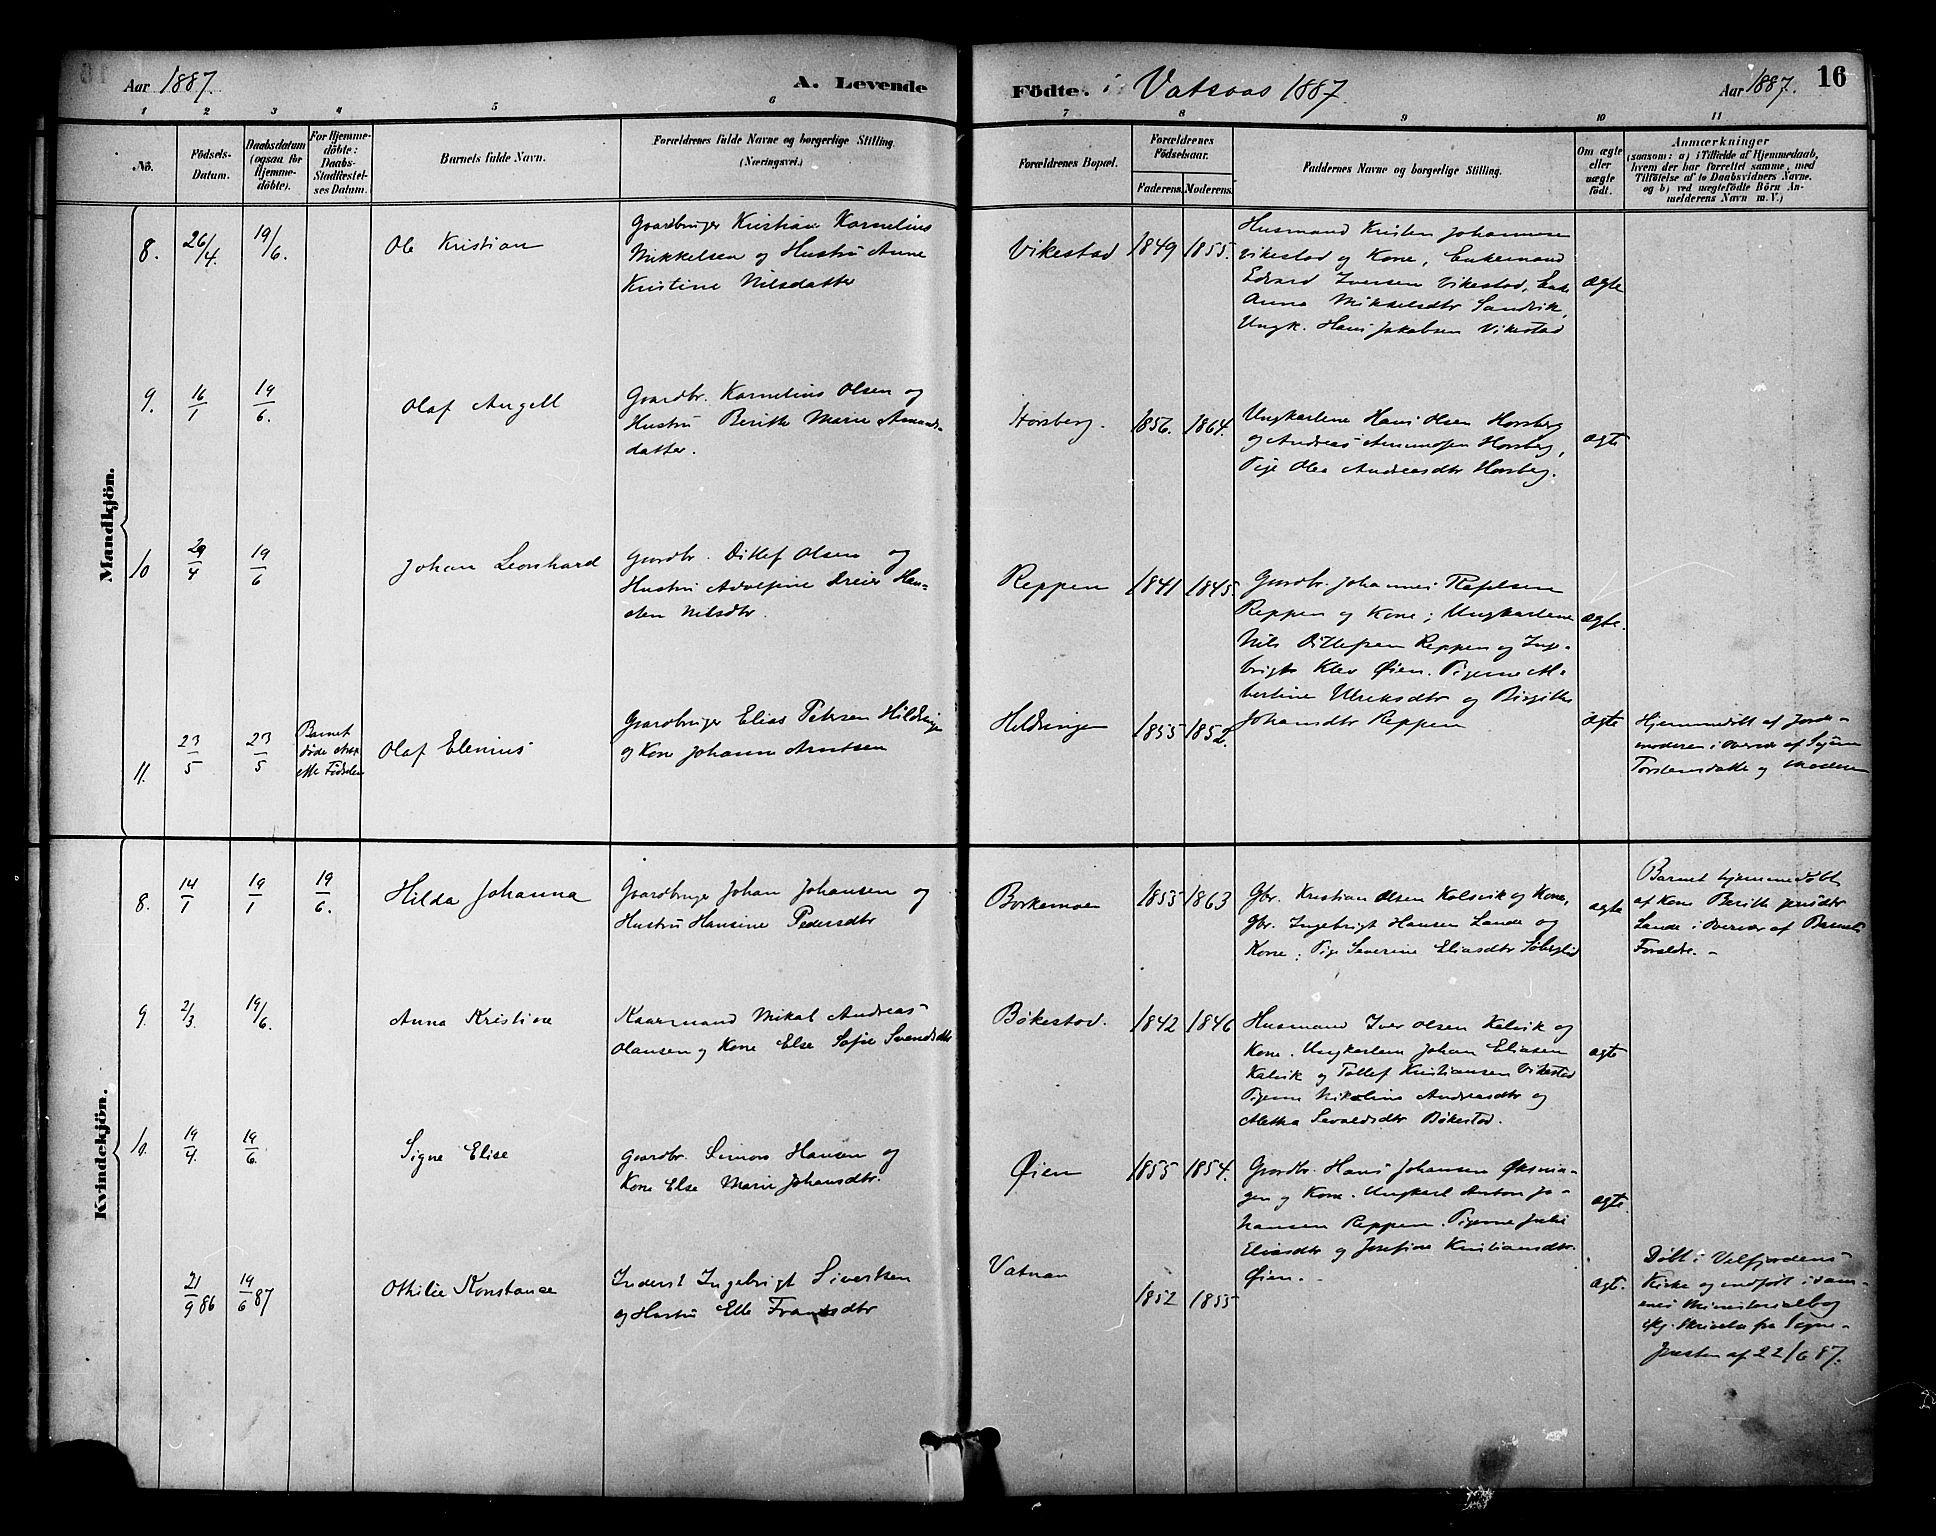 Aar 1887. A. Levende Födte. i Vatsaas 1887. Aar 1887. 16
1 2 3 4 5 6 7 8 9 10 11
No.
Födsels-
Datum.
Daabsdatum
(ogsaa for
Hjemme-
döbte).
For Hjemme-
döbte:
Daabs-
Stadfæstel-
ses Datum.
Barnets fulde Navn.
Forældrenes fulde Navne og borgerlige Stilling.
(Næringsvei.)
Forældrenes Bopæl.
Forældrenes
Födselsaar.
Faderens. Moderens.
Faddernes Navne og borgerlige Stilling.
Om ægte
eller
uægte
födt.
Anmærkninger
(saasom: a) i Tilfælde af Hjemmedaab,
hvem der har forrettet samme, med
Tilföielse af to Daabsvidners Navne,
og b) ved uægtefödte Börn An-
melderens Navn m. V.)
Mandkjön.
8. 26/4. 19/6.
Ole Kristian
Gaardbruger Kristian Kornelius
Mikkelsen og Hustru Anne
Kristine Nilsdatter
Vikestad 1849 1855.
Husmand Kristen Johannesen
Vikestad og Kone, Enkemand
Edvard Iversen Vikestad,
Anna Mikkelsdtr Sandvik,
Ungk. Hans Jakobsen Vikestad
ægte
9. 16/1 19/6.
Olaf Angell
Gaardbr. Kornelius Olsen og
Hustru Berithe Marie Amunds-
datter.
Horsberg. 1856. 1864.
Ungkarlene Hans Olsen Horsberg
og Andreas Amundsen Horsberg,
Pige Olea Andreasdtr Horsberg.
ægte
10 29/4 19/6
Johan Leonhard
Gaardbr. Ditlef Olsen og
Hustru Adolfine Dreier Han-
sen Nilsdtr.
Reppen 1841 1845.
Gaardbr. Johannes Rafelsen
Reppen og Kone; Ungkarlene
Nils Ditlefsen Reppen og Inge-
brigt Klev Øien. Pigerne Al-
bertine Ulriksdtr og Birgitte
Johansdtr Reppen
ægte.
11. 23/5 23/5
Barnet
döde strax
efter Födselen
Olaf Elenius
Gaardbruger Elias Petersen Hildringen
og Kone Johanna Arntsen
Heldringen 1855 1852.
ægte
Hjemmedöbt af Jorde-
moderen i Overvær af
Torstensdatter og Moderen
Kvindekjön.
8. 14/1 19/1 19/6.
Hilda Johanna
Gaardbruger Johan Johansen og
Hustru Hansine Pedersdtr
Borkemoen 1853 1863
Gbr. Kristian Olsen Kalvik og Kone,
Gbr. Ingebrigt Hansen Lande og
Kone; Pige Severine Eliasdtr Söberglid
ægte
Barnet hjemmedöbt
af Kone Berith Jensdtr
Lande i Overvær af Barnets
Forældre. -
9. 2/3. 19/6.
Anna Kristine
Kaarmand Mikal Andreas
Olausen og Kone Else Sofie Svendsdtr
Bökestad. 1842 1846
Husmand Iver Olsen Kalvik og
Kone. Ungkarlene Johan Eliasen
Kalvik og Tollef Kristiansen Vikestad
Pigerne Nikoline Andreasdtr og
Aletha Sevaldsdtr Bökestad.
ægte
10. 19/4. 19/6.
Signe Elise
Gaardbr. Simon Hansen og
Kone Else Marie Johansdtr.
Øien 1855 1854.
Gaardbr. Hans Johansen Øksnin-
gen og Kone. Ungkarl Anton Jo-
hansen Reppen. Pigerne Julie
Eliasdtr og Josefine Kristiansdtr.
Øien. -
ægte.
21/9 86 19/6 87
Othilie Konstance
Inderst Ingebrigt Sivertsen
og Hustru Elle Fransdtr
Vatnan 1852 1855
ægte.
Döbt i Velfjordens
Kirke og indfört i sam-
mes Ministerialbog
Skj. Skrivelse fra Sogne-
presten af 22/6 87.